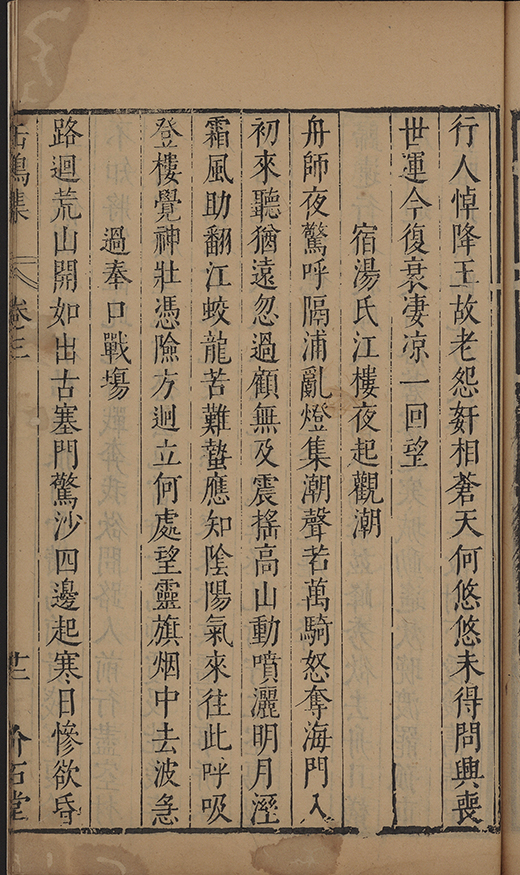 行人悼降王故老怨奸相蒼天何悠悠未得問興喪
世運今復衰凄凉一回望
宿湯氏江樓夜起觀潮
舟師夜驚呼隔浦亂燈集潮聲若萬騎怒奪海門入
初來聽猶遠忽過顧無及震搖高山動噴灑明月溼
霜風助翻江蛟龍苦難蟄應知陰陽氣來往此呼吸
登樓覺神壯憑險方迥立何處望靈旗烟中去波急
過奉口戰塲
路迴荒山開如出古塞門驚沙四邊起寒日慘欲昏
缶鳴集 卷三 廿二 竹石堂